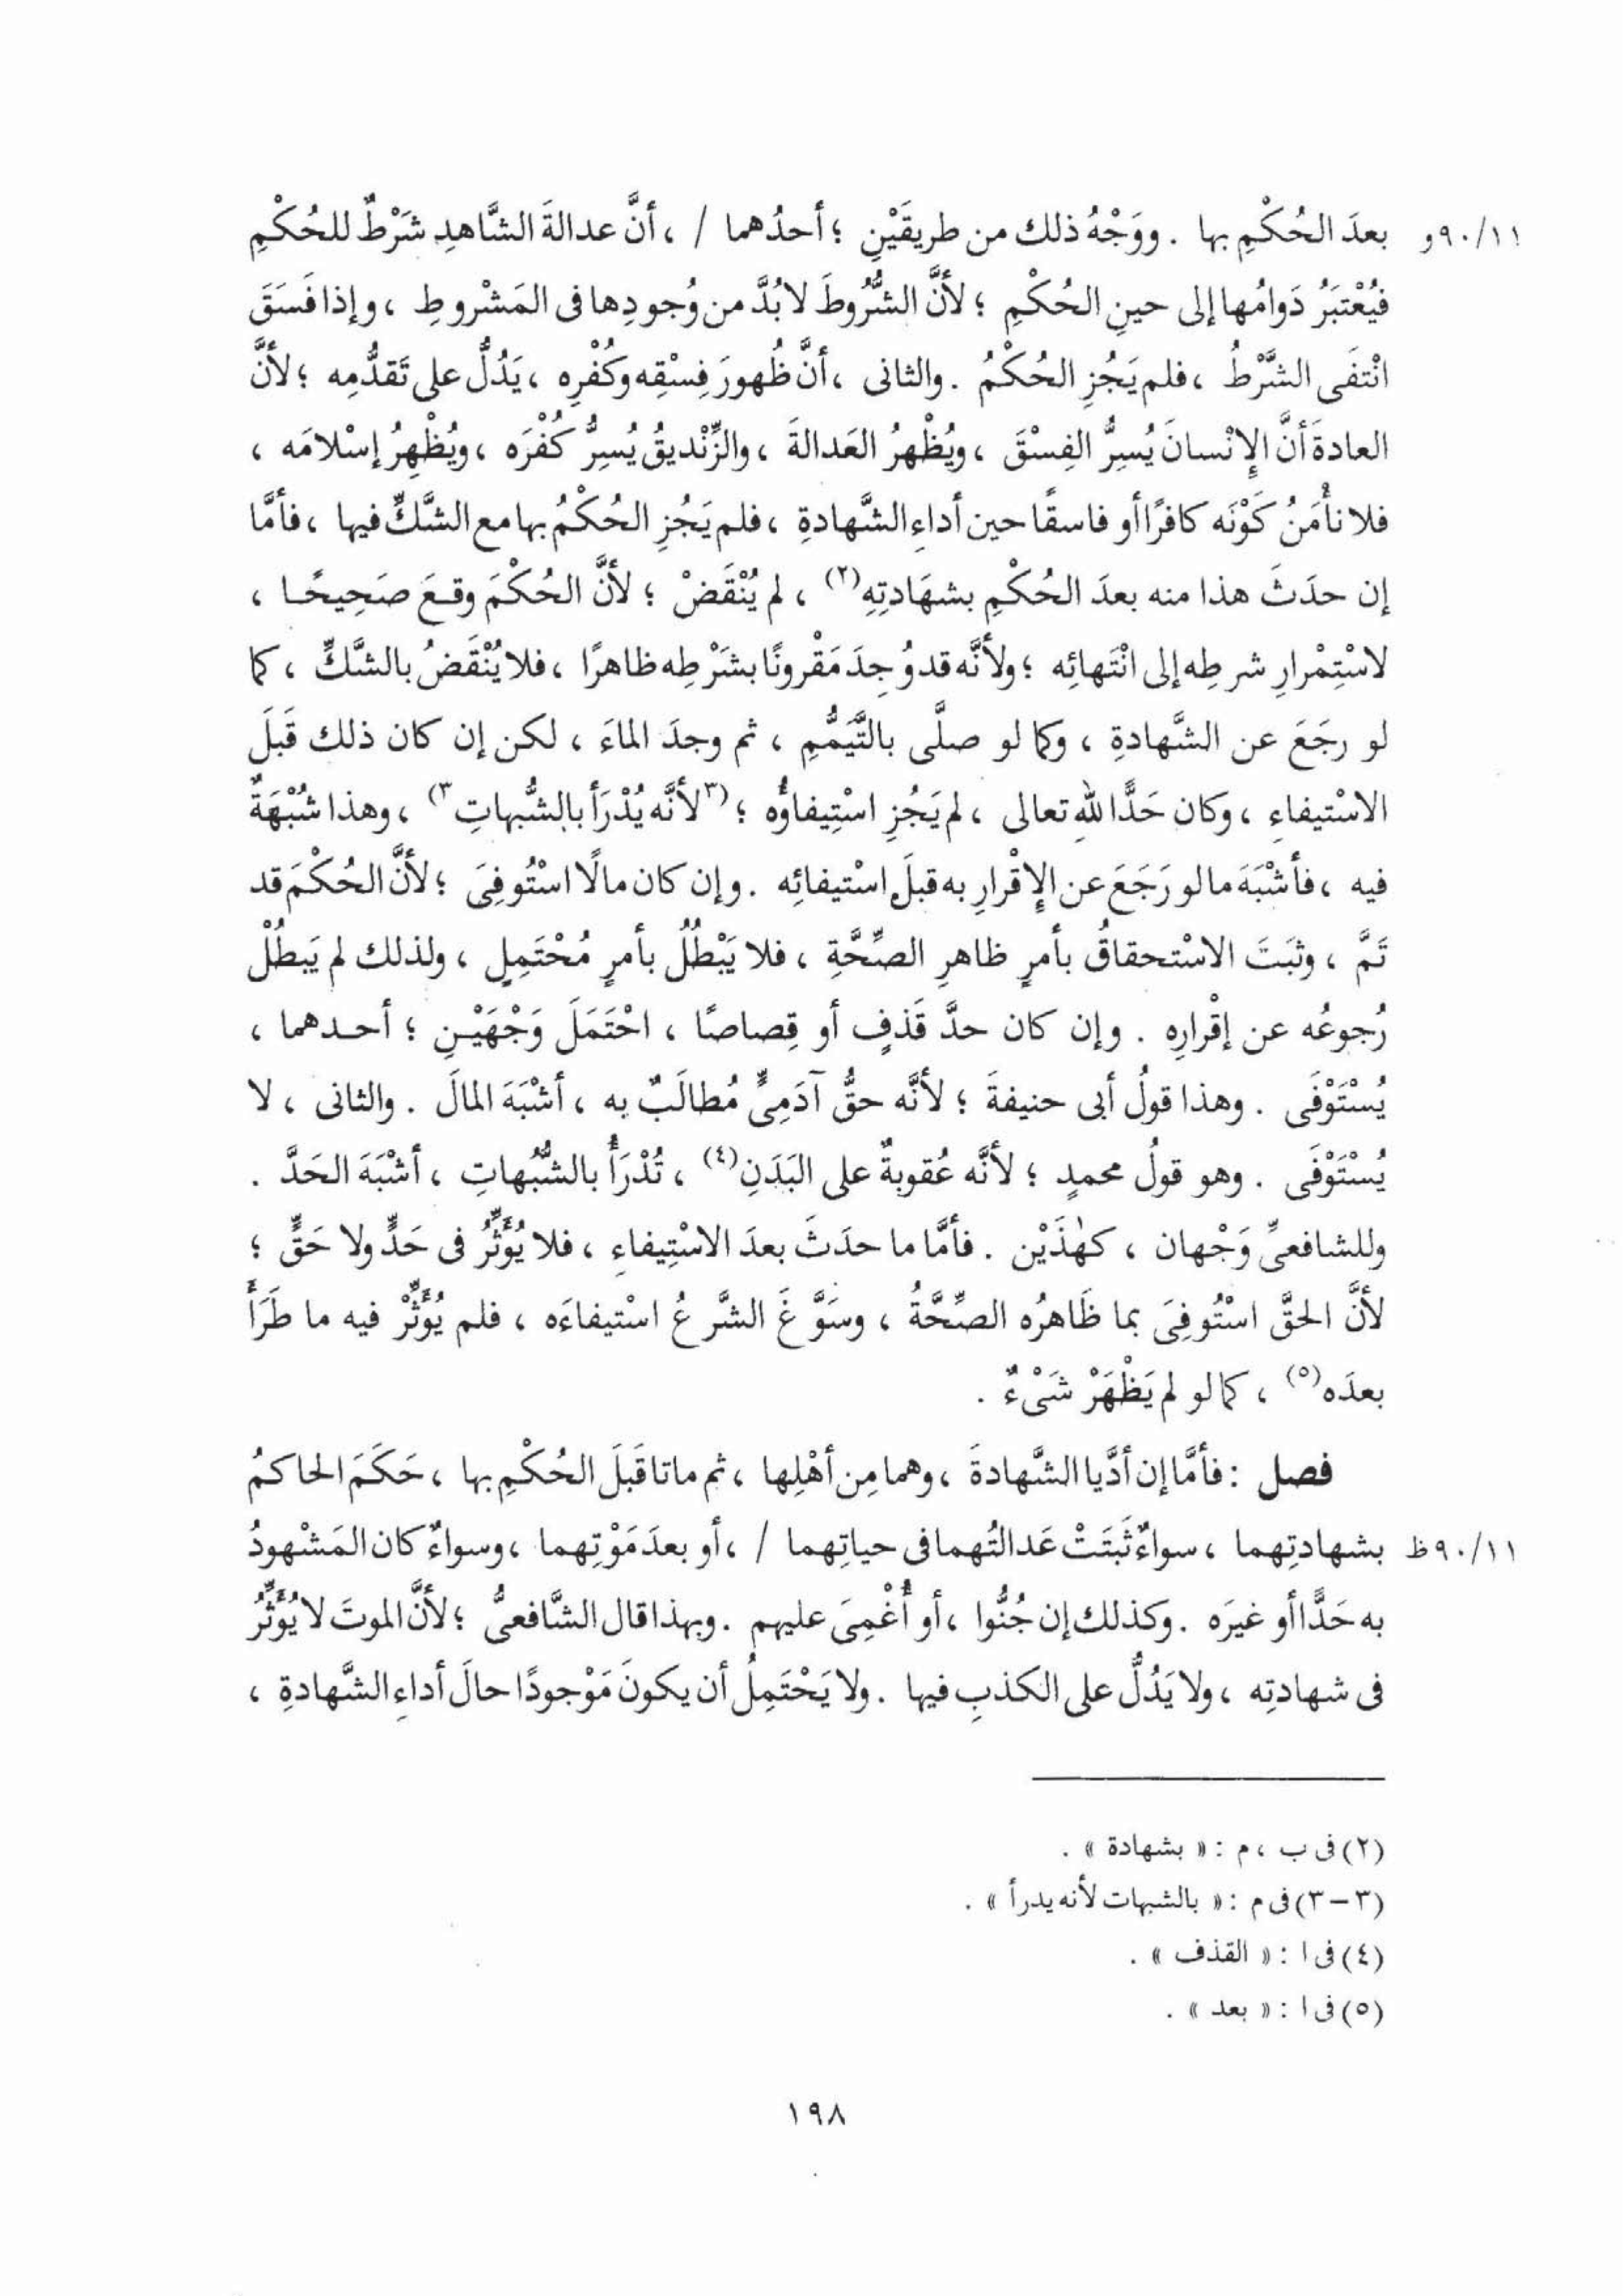 ١١/٩٠و بعدَ الحُكْمِ بها . ووَجْهُ ذلك من طريقَيْنِ ؛ أحدُهما / ، أنَّ عدالةَ الشَّاهدِ شَرْطٌ للحُكْمِ
فيُعْتبَرُ دَوامُها إلى حينِ الحُكْمِ ؛ لأنَّ الشُّرُوطَ لا بُدَّ من وُجودِها فى المَشْروطِ ، وإذا فَسَقَ
انْتفَى الشَّرْطُ ، فلم يَجُزِ الحُكْمُ . والثانى ، أنَّ ظُهورَ فِسْقِه وكُفْرِه ، يَدُلُّ على تَقدُّمِه ؛ لأنَّ
العادةَ أنَّ الإِنْسانَ يُسِرُّ الفِسْقَ ، ويُظْهِرُ العَدالةَ ، والزِّنْديقُ يُسِرُّ كُفْرَه ، ويُظْهِرُ إسْلامَه ،
فلا نأْمَنُ كَوْنَه كافرًا أو فاسقًا حين أداءِ الشَّهادةِ ، فلم يَجُزِ الحُكْمُ بها مع الشَّكِّ فيها ، فأمَّا
إن حدَثَ هذا منه بعدَ الحُكْمِ بشهَادتِهِ(٢) ، لم يُنْقَضْ ؛ لأنَّ الحُكْمَ وقعَ صَحِيحًا ،
لاسْتِمْرارِ شرطِه إلى انْتَهائِه ؛ ولأنَّه قد وُجِدَ مَقْرونًا بشَرْطِه ظاهرًا ، فلا يُنْقَضُ بالشَّكِّ ، كما
لو رجَعَ عن الشَّهادةِ ، وكما لو صلَّى بالتَّيَمُّمِ ، ثم وجدَ الماءَ ، لكن إن كان ذلك قَبلَ
الاسْتيفاءِ ، وكان حَدًّا للهِ تعالى ، لم يَجُزِ اسْتِيفاؤُه ؛ (٣لأنَّه يُدْرَأُ بالشُّبهاتِ٣) ، وهذا شُبْهَةٌ
فيه ، فأشْبَهَ ما لو رَجَعَ عن الإِقْرارِ به قبلَ اسْتيفائِه . وإن كان مالًا اسْتُوفِىَ ؛ لأنَّ الحُكْمَ قد
تَمَّ ، وثبَتَ الاسْتحقاقُ بأمرٍ ظاهرِ الصِّحَّةِ ، فلا يَبْطُلُ بأمرٍ مُحْتَمِلٍ ، ولذلك لم يَبطُلْ
رُجوعُه عن إقْرارِه . وإن كان حدَّ قَذفٍ أو قِصاصًا ، احْتَمَلَ وَجْهَيْنِ ؛ أحدهما ،
يُسْتَوْفَى . وهذا قولُ أبى حنيفةَ ؛ لأنَّه حقُّ آدَمِىٍّ مُطالَبٌ به ، أشْبَهَ المالَ . والثانى ، لا
يُسْتَوْفَى . وهو قولُ محمدٍ ؛ لأنَّه عُقوبةٌ على البَدَنِ(٤) ، تُدْرَأُ بالشُّبُهاتِ ، أشْبَهَ الحَدَّ .
وللشافعىِّ وَجْهان ، كهٰذَيْن . فأمَّا ما حدَثَ بعدَ الاسْتِيفاءِ ، فلا يُؤَثِّرُ فى حَدٍّ ولا حَقٍّ ؛
لأنَّ الحقَّ اسْتُوفِىَ بما ظَاهرُه الصِّحَّةُ ، وسَوَّغَ الشَّرعُ اسْتيفاءَه ، فلم يُؤَثِّرْ فيه ما طَرَأَ
بعدَه(٥) ، كما لو لم يَظْهَرْ شَىْءٌ .
فصل : فأمَّا إن أدَّيا الشَّهادةَ ، وهما مِن أهْلِها ، ثم ماتا قَبلَ الحُكْمِ بها ، حَكَمَ الحاكمُ
١١/٩٠ظ بشهادتِهما ، سواءٌ ثَبَتَتْ عَدالتُهما فى حياتِهما / ، أو بعدَ مَوْتِهما ، وسواءٌ كان المَشْهودُ
به حَدًّا أو غيرَه . وكذلك إن جُنُّوا ، أو أُغْمِىَ عليهم . وبهذا قال الشَّافعىُّ ؛ لأنَّ الموتَ لا يُؤَثِّرُ
فى شهادتِه ، ولا يَدُلُّ على الكذبِ فيها . ولا يَحْتَمِلُ أن يكونَ مَوْجودًا حالَ أداءِ الشَّهادةِ ،
(٢) فى ب ، م : « بشهادة » .
(٣ – ٣) فى م : « بالشبهات لأنه يدرأ » .
(٤) فى ا : « القذف » .
(٥) فى ا : « بعد » .
١٩٨